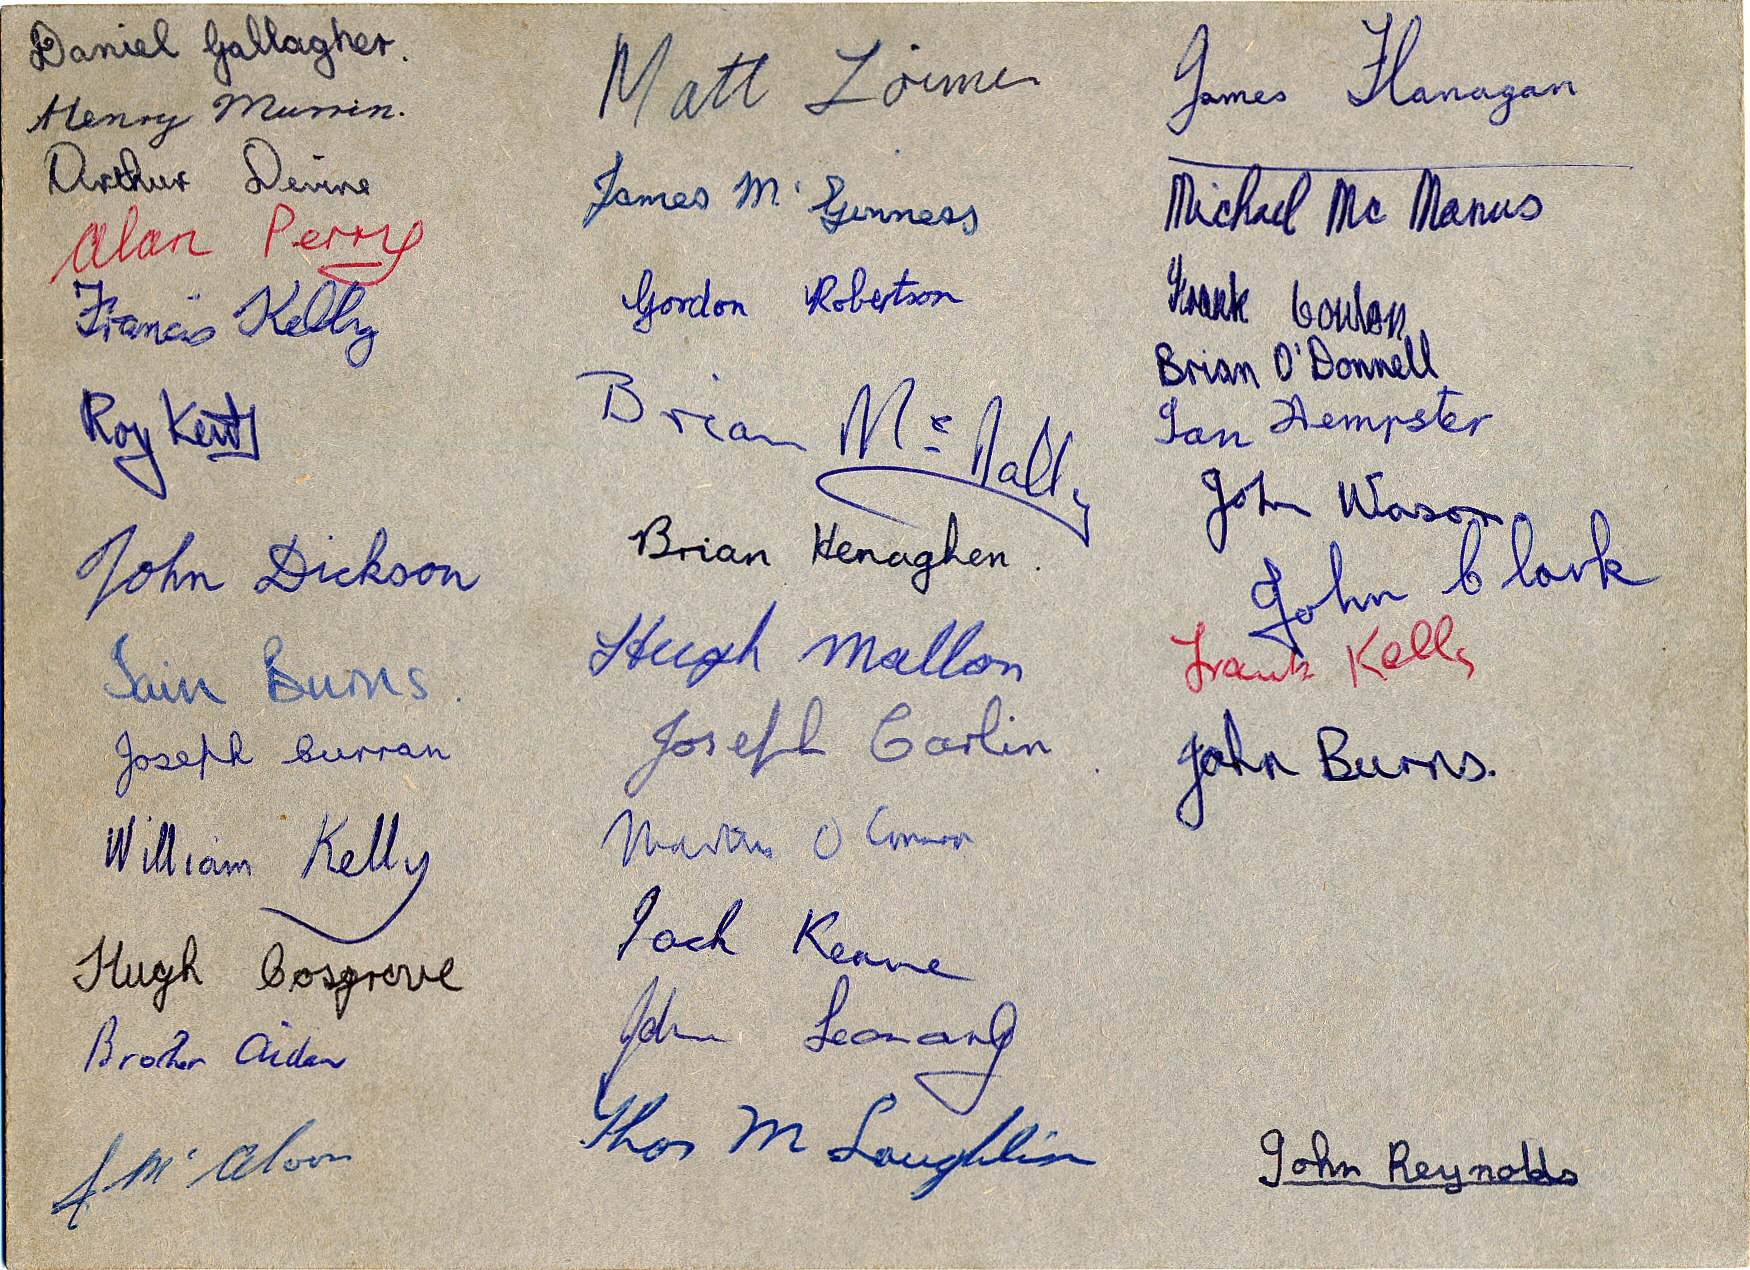 Daniel Gallagher.
Henry Murrin.
Arthur Devine
Alan Perry
Francis Kelly
Roy Kent
John Dickson
Iain Burns.
Joseph Curran
William Kelly
Hugh Cosgrove
Brother Aidan
J Mc Aloon
Matt Lorimer
James Mc Ginness
Gordon Robertson
Brian Mc Nally
Brian Henaghen.
Hugh Mallon
Joseph Carlin
Martin O Connor
Jack Keane
John Leonard
Thos Mc Loughlin
James Flanagan
Michael Mc Manus
Frank Conlon
Brian O'Donnell
Ian Hempster
John Wason
John Clark
Frank Kelly
John Burns.
John Reynolds